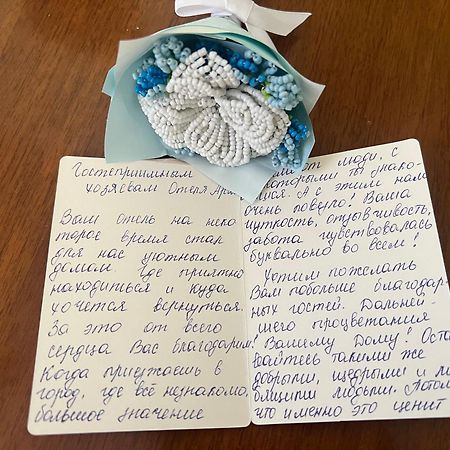 Гостеприимным
хозяевам Отеля
Ваш отель на неко
торое время стал
для нас уютным
домом. Где приятно
находиться и куда
хочется вернуться.
За это от всего
сердца Вас благодарим!
Когда приезжаешь в
город, где всё незнакомо,
большое значение
люди, с
которыми ты знако-
мися. А с этим нам
очень повезло! Ваша
чуткость, отзывчивость,
забота чувствовалась
буквально во всем!
Хотим пожелать
Вам побольше благодар-
ных гостей. Дальней-
шего процветания
Вашему Дому! Оста
вайтесь такими же
добрыми, щедрыми и
людьми.
что именно это ценит